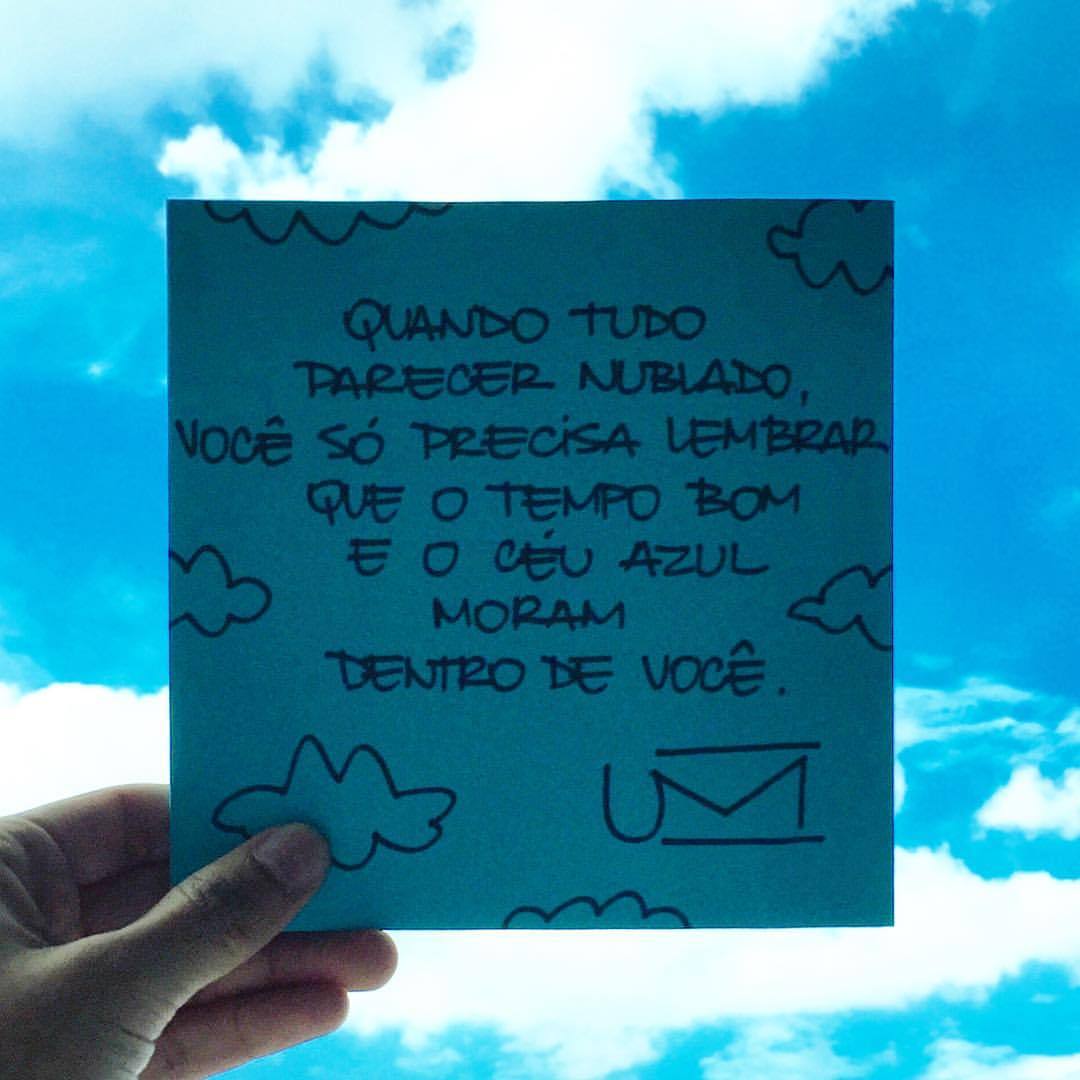 QUANDO TUDO
PARECER NUBLADO,
VOCÊ SÓ PRECISA LEMBRAR
QUE O TEMPO BOM
E O CÉU AZUL
MORAM
DENTRO DE VOCÊ.
UM